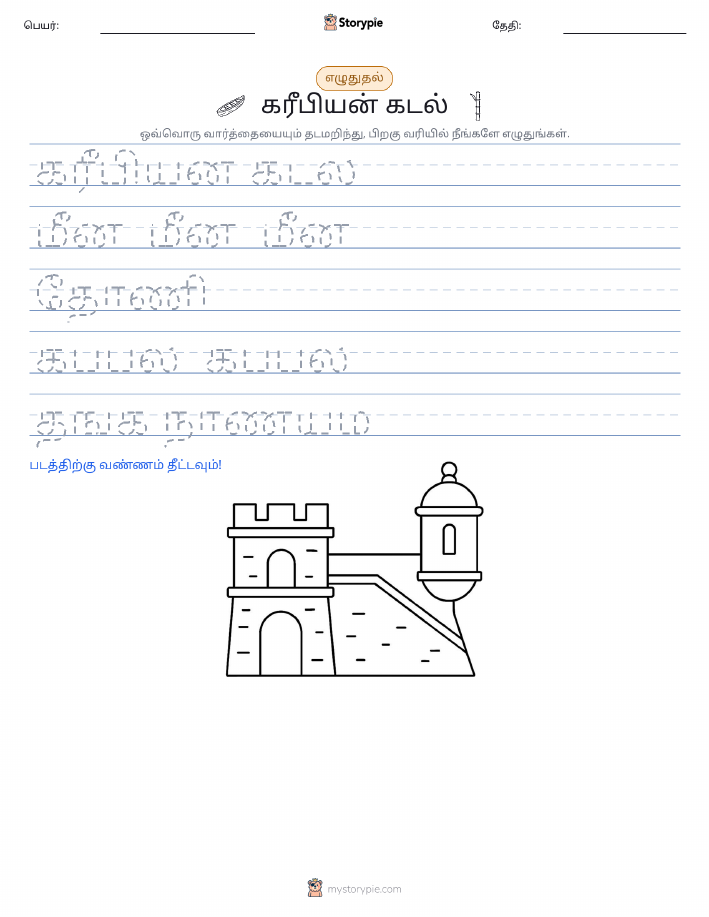 பெயர்:
Storypie
தேதி:
எழுதுதல்
கரீபியன் கடல்
ஒவ்வொரு வார்த்தையையும் தடமறிந்து, பிறகு வரியில் நீங்களே எழுதுங்கள்.
கரீபியன கடல
மீன மீன மீன
தோணி
கபபல் கபபல்
தஙக நாணயம
படத்திற்கு வண்ணம் தீட்டவும்!
mystorypie.com